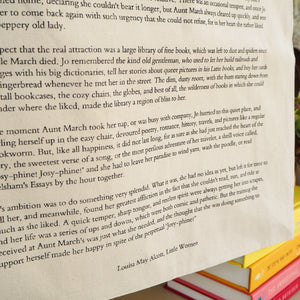 home, declaring she couldn't bear it longer, but Aunt March always cleared up quickly, and sent
to come back again with such urgency that she could not refuse, for in her heart she rather liked
peppery old lady.
pect that the real attraction was a large library of fine books, which was left to dust and spiders since
le March died. Jo remembered the kind old gentleman, who used to let her build railroads and
ges with his big dictionaries, tell her stories about queer pictures in his Latin books, and buy her cards
gingerbread whenever he met her in the street. The dim, dusty room, with the busts staring down from
tall bookcases, the cozy chairs, the globes, and best of all, the wilderness of books in which she could
nder where she liked, made the library a region of bliss to her.
e moment Aunt March took her nap, or was busy with company, Jo hurried to this quiet place, and
rling herself up in the easy chair, devoured poetry, romance, history, travels, and pictures like a regular
okworm. But, like all happiness, it did not last long, for as sure as she had just reached the heart of the
ry, the sweetest verse of a song, or the most perilous adventure of her traveler, a shrill voice called,
sy-phine! Josy-phine!" and she had to leave her paradise to wind yarn, wash the poodle, or read
lsham's Essays by the hour together.
's ambition was to do something very splendid. What it was, she had no idea as yet, but left it for time to
ll her, and meanwhile, found her greatest affliction in the fact that she couldn't read, run, and ride as
uch as she liked. A quick temper, sharp tongue, and restless spirit were always getting her into scrapes,
nd her life was a series of ups and downs, which were both comic and pathetic. But the training she
eceived at Aunt March's was just what she needed, and the thought that she was doing something to
upport herself made her happy in spite of the perpetual "Josy-phine!"
Louisa May Alcott, Little Women